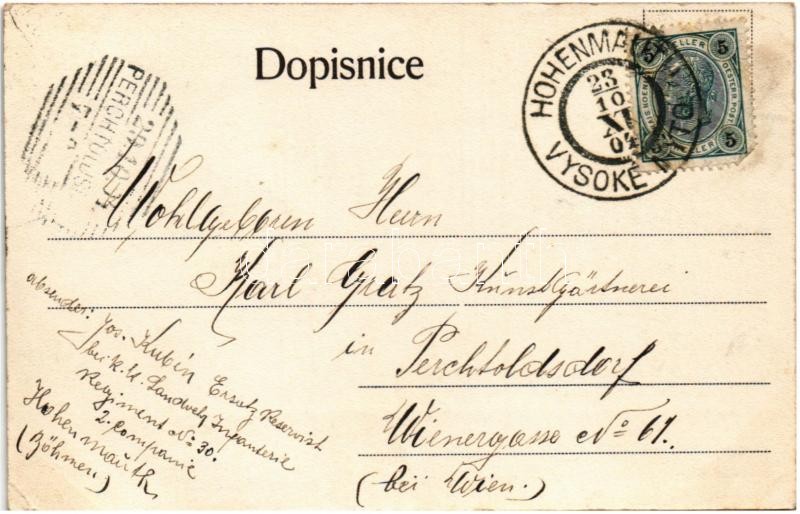 Dopisnice
HOHENMAUTH
23
10
XI
04
VYSOKÉ MÝTO
5 HELLER 5
5
PERCHTOLDS
Wohlgeboren Herrn
Karl Gratz Kunstgärtnerei
in Perchtoldsdorf
Wienergasse No 61.
(bei Wien.)
absender: Jos. Kubín Ersatz Reservist
bei k.k. Landwehr Infanterie
Regiment No 30.
2. Companie
Hohenmauth
(Böhmen)